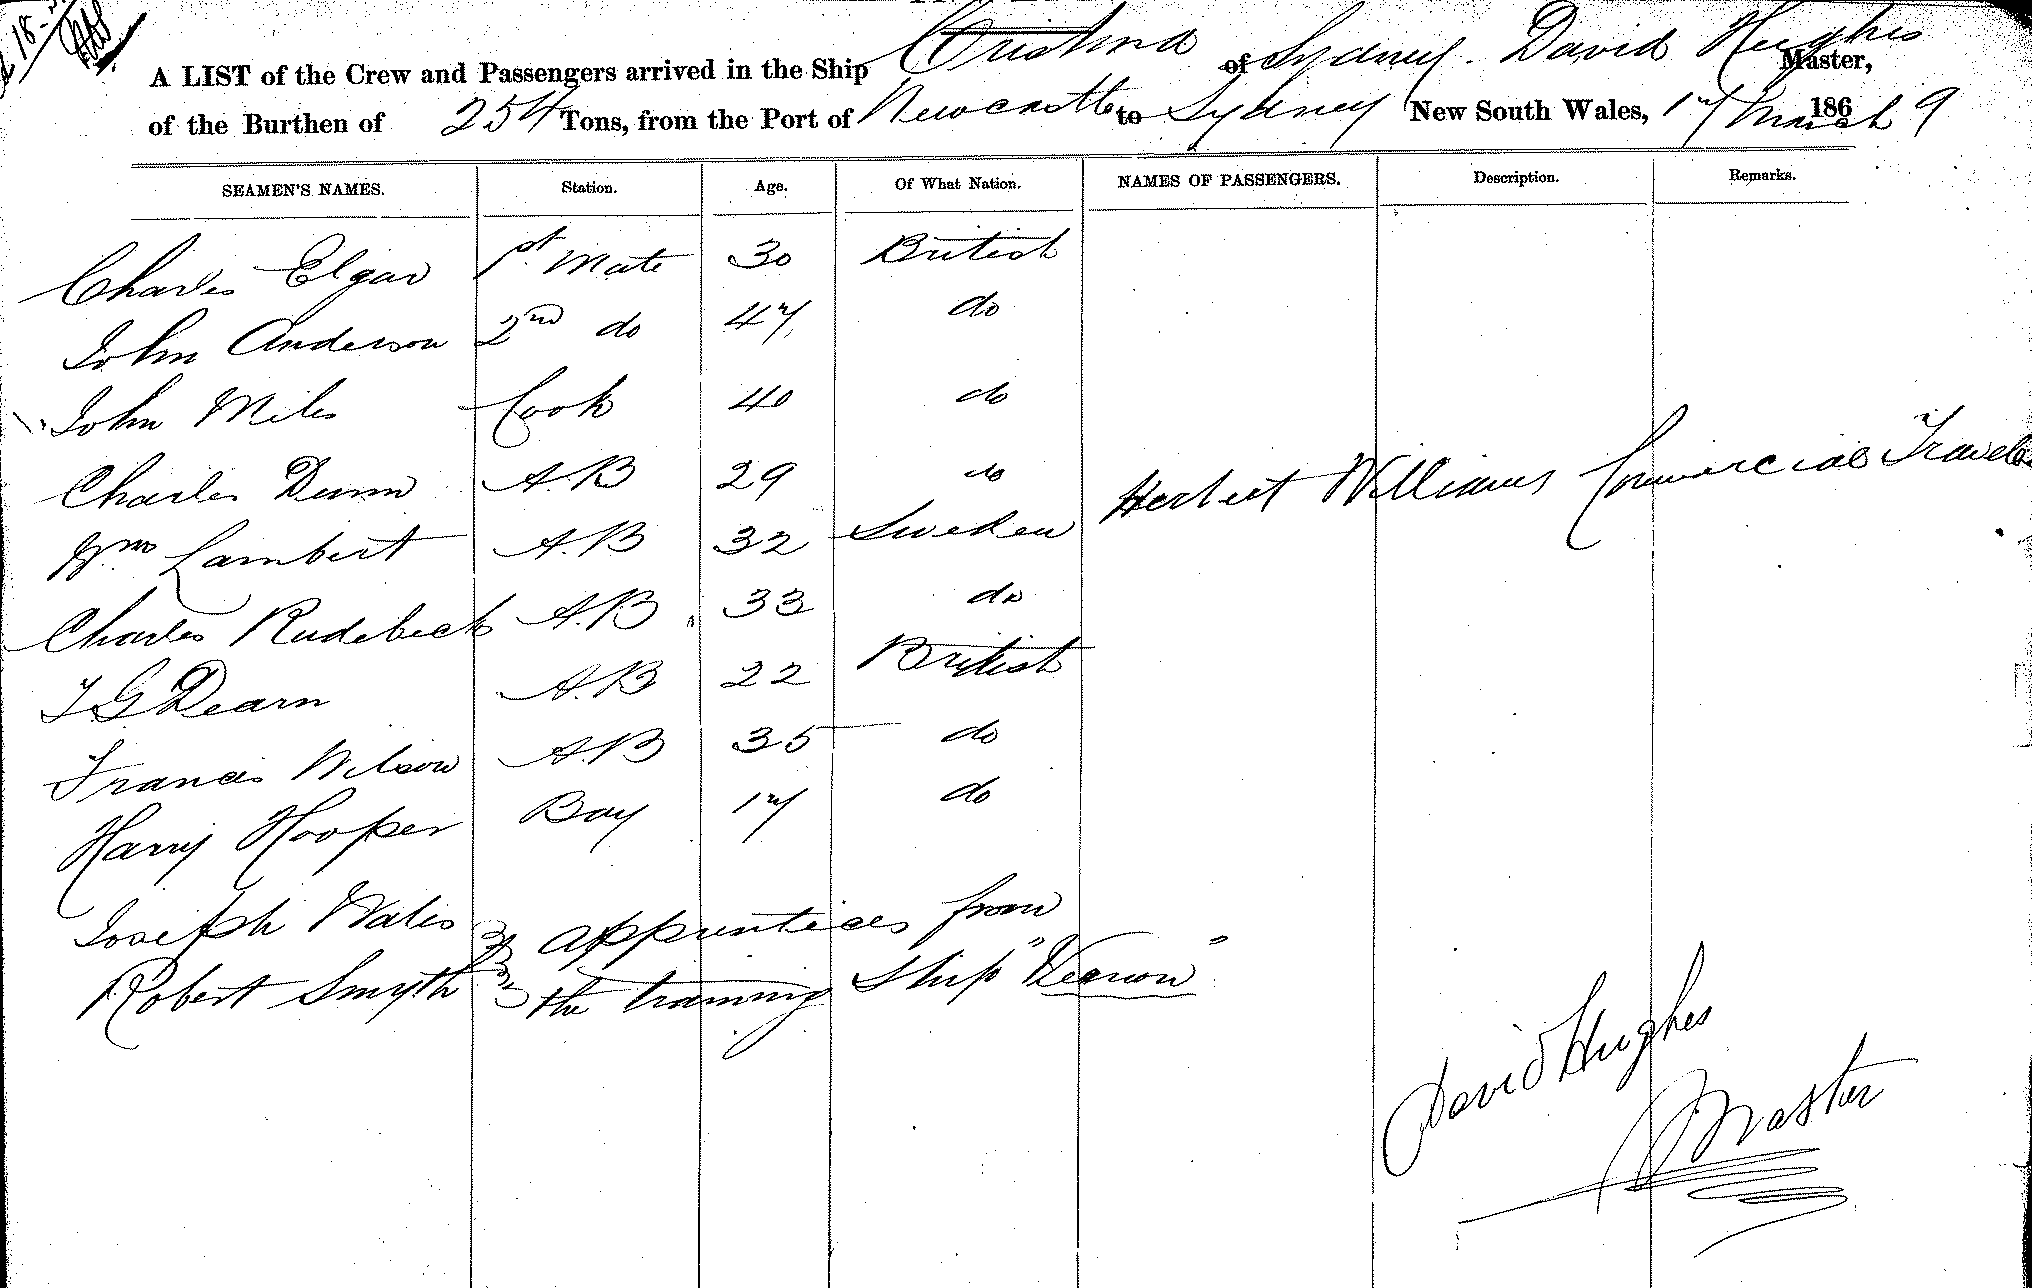 A LIST of the Crew and Passengers arrived in the Ship Cristina of Sydney. David Hughes Master,
of the Burthen of 254 Tons, from the Port of Newcastle to Sydney New South Wales, 17 March 1869
SEAMEN'S NAMES. Station. Age. Of What Nation. NAMES OF PASSENGERS. Description. Remarks.
Charles Elgar 1st Mate 30 British
John Anderson 2nd do 47 do
John Miles Cook 40 do
Charles Dunn A.B 29 do Herbert Williams Commercial
Wm Lambert A.B 32 Sweden
Charles Rudebeck A.B 33 do
T G Dearn A.B 22 British
Francis Wilson A.B 35 do
Harry Hooper Boy 17 do
Joseph Wales apprentices from
Robert Smyth the training Ship "Vernon"
David Hughes
Master